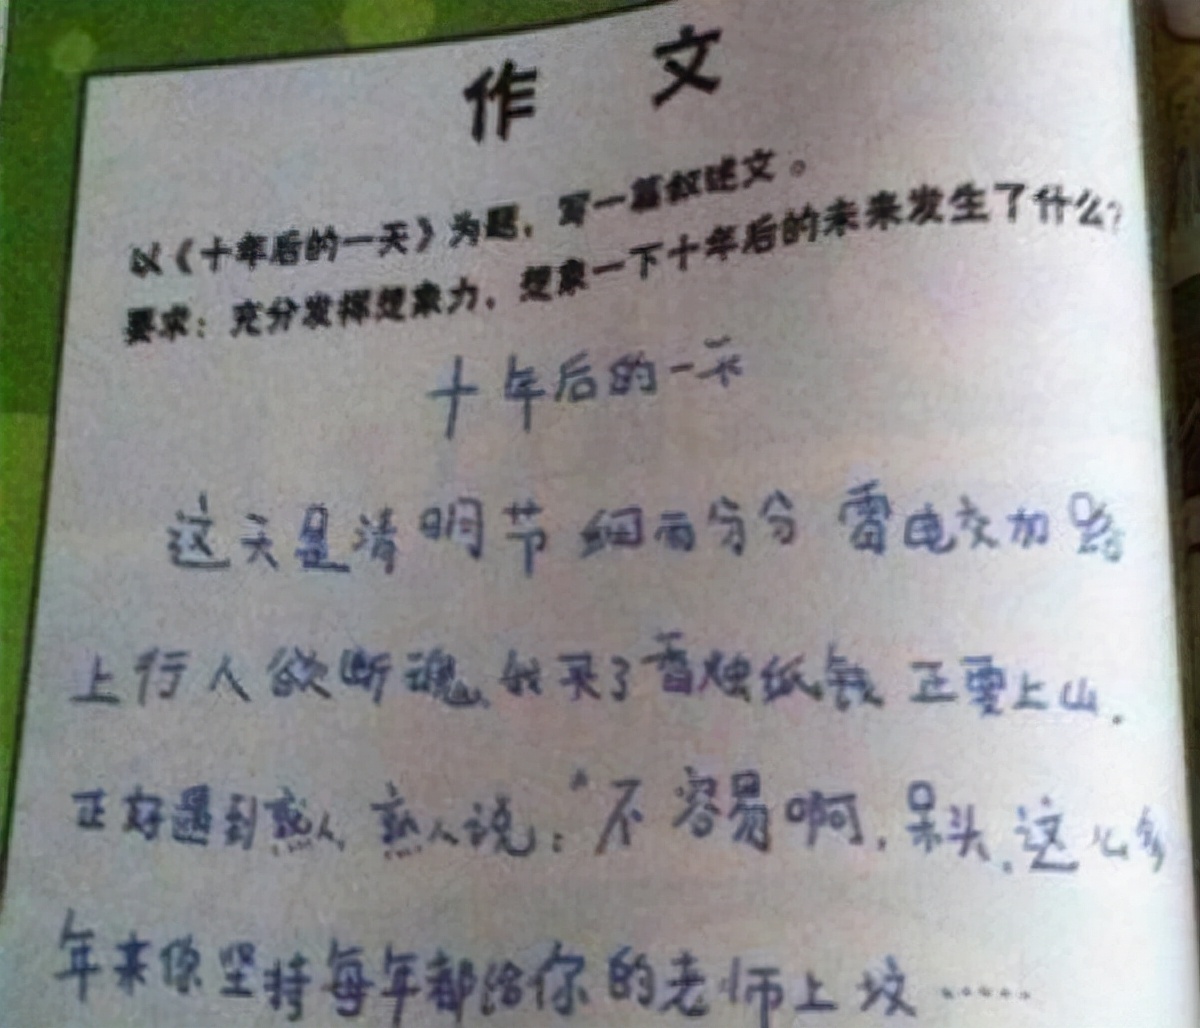 作 文
以《十年后的一天》为题，写一篇叙述文。
要求：充分发挥想象力，想象一下十年后的未来发生了什么？
十年后的一天
这天是清明节 细雨分分 雷电交加 路
上行人欲断魂，我买了香烛纸钱 正要上山．
正好遇到熟人，熟人说：“不容易啊，呆头，这么多
年来你坚持每年都给你的老师上坟……